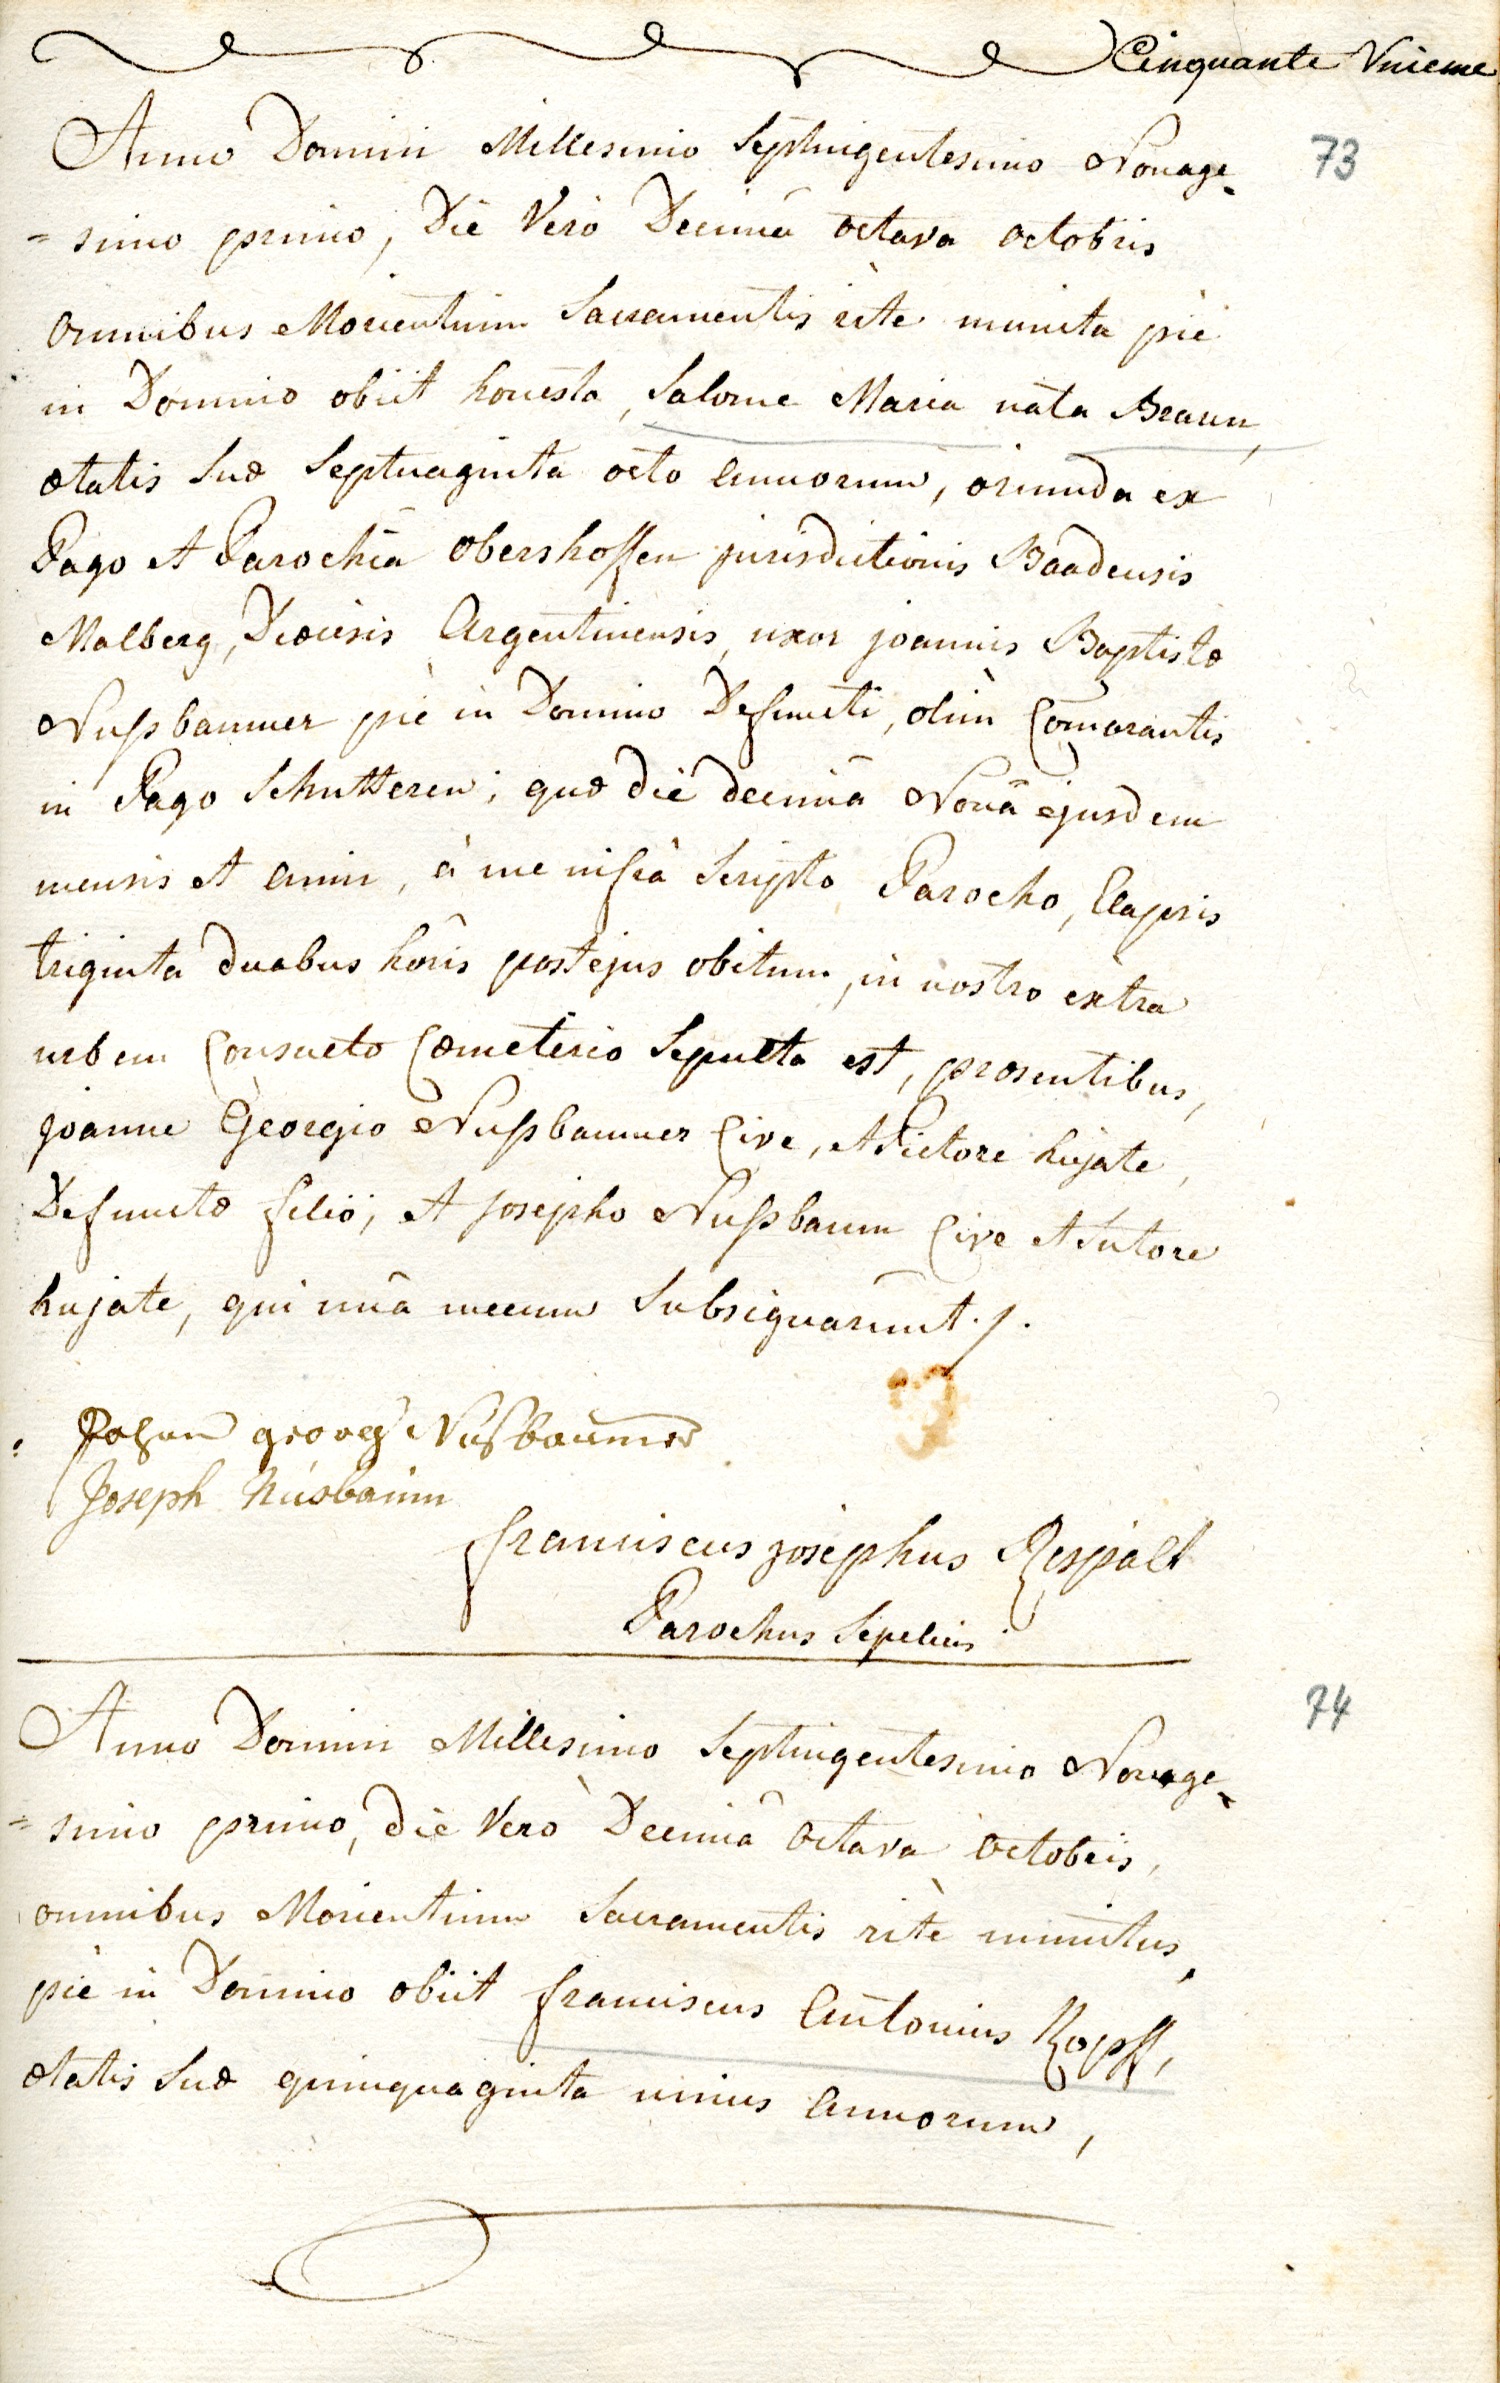 Cinquante Vnieme
73
Anno Domini Millesimo Septingentesimo Nonage-
=simo primo, Die Vero Decimâ octava octobris
omnibus Morientium Sacramentis rite munita piè
in Domino obiit honesta, Salome Maria nata Braun,
ætatis Suæ Septuaginta octo annorum, oriunda ex
Pago et Parochiâ obershoffen jurisdictionis Baadensis
Malberg, Diœcisis Argentinensis, uxor joannis Baptistæ
Nußbaumer piè in Domino Defuncti, olim Com̄orantis
in Pago Schutteren; quæ die decimâ Nonâ ejusdem
mensis et anni, à me infrà Scripto Parocho, Elapsis
triginta duabus horis post ejus obitum, in nostro extra
urbem Consueto Cœmeterio Sepulta est, præsentibus,
joanne Georgio Nußbaumer Cive, et Pictore hujate,
Defunctæ filiö, et josepho Nußbaum Cive et Sutore
hujate, qui unâ mecum Subsignarunt./.
Johan georg Nußbaumer
Joseph Nusbaum
franciscus josephus Respalt
Parochus Sepeliens
74
Anno Domini Millesimo Septingentesimo Nonage-
=simo primo, die Verò Decimâ octava octobris,
omnibus Morientium Sacramentis ritè munitus,
piè in Domino obiit franciscus Antonius Kopff,
ætatis Suæ quinquaginta unius annorum,